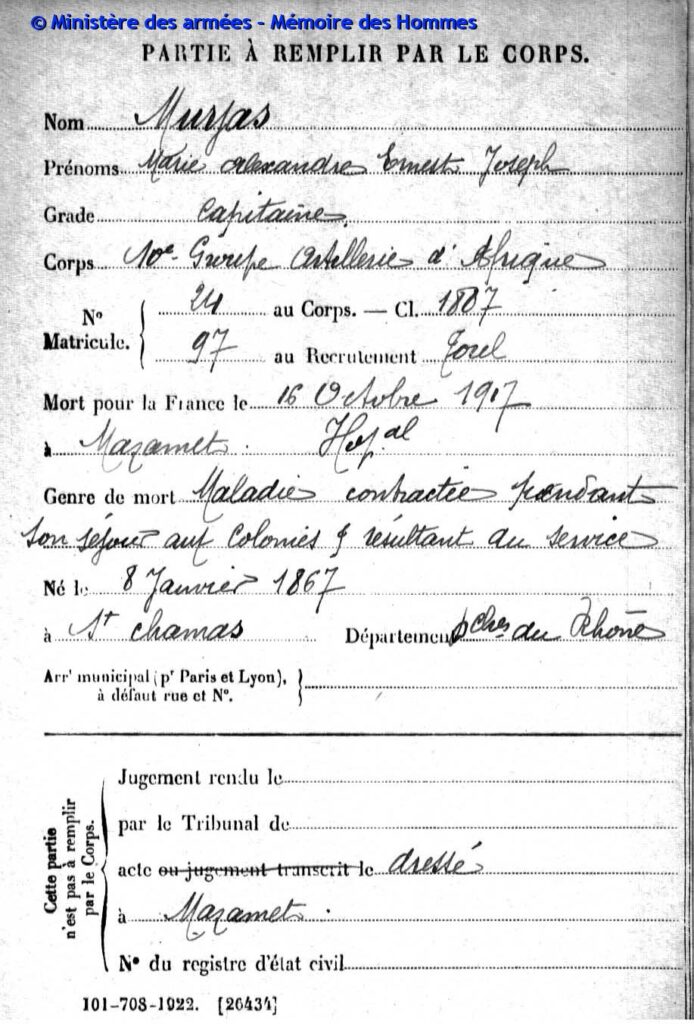 © Ministère des armées - Mémoire des Hommes
PARTIE À REMPLIR PAR LE CORPS.
Nom Murjas
Prénoms Marie Alexandre Ernest Joseph
Grade Capitaine
Corps 10e Groupe Artillerie d'Afrique
No Matricule. { 24 au Corps. — Cl. 1887
97 au Recrutement
Mort pour la France le 16 Octobre 1917
à Mazamet. Hopal
Genre de mort Maladie contractée pendant
son séjour aux Colonies & résultant du service
Né le 8 Janvier 1867
à St Chamas Département Bches du Rhône
Arrt municipal (pr Paris et Lyon),
à défaut rue et No.
Cette partie n'est pas à remplir par le Corps.
Jugement rendu le
par le Tribunal de
acte ou jugement transcrit le dressé
à Mazamet.
No du registre d'état civil
101-708-1922. [26434]